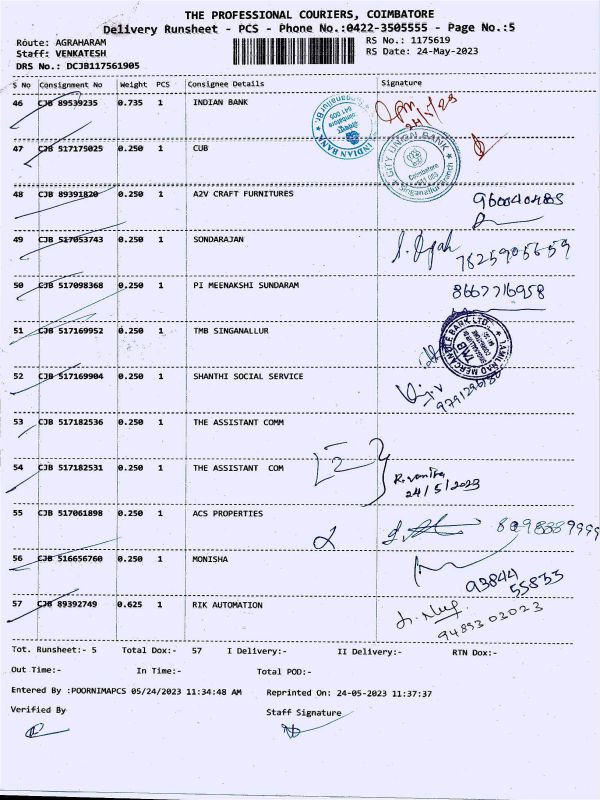 THE PROFESSIONAL COURIERS, COIMBATORE
Delivery Runsheet - PCS - Phone No.:0422-3505555 - Page No.:5
Route: AGRAHARAM RS No.: 1175619
Staff: VENKATESH RS Date: 24-May-2023
DRS No.: DCJB117561905
S No Consignment No Weight PCS Consignee Details Signature
46 CJB 89539235 0.735 1 INDIAN BANK
24/5/23
INDIAN BANK
47 CJB 517175025 0.250 1 CUB
CITY UNION BANK
Coimbatore
641 005
Singanallur Branch
48 CJB 89391820 0.250 1 A2V CRAFT FURNITURES
49 CJB 517053743 0.250 1 SONDARAJAN
7825905659
50 CJB 517098368 0.250 1 PI MEENAKSHI SUNDARAM
8667716958
51 CJB 517169952 0.250 1 TMB SINGANALLUR
TAMILNAD MERCANTILE BANK LTD.
TMB
52 CJB 517169904 0.250 1 SHANTHI SOCIAL SERVICE
53 CJB 517182536 0.250 1 THE ASSISTANT COMM
54 CJB 517182531 0.250 1 THE ASSISTANT COM
2
R. vanitha
24/5/2023
55 CJB 517061898 0.250 1 ACS PROPERTIES
56 CJB 516656760 0.250 1 MONISHA
93844
55833
57 CJB 89392749 0.625 1 RIK AUTOMATION
9489303023
Tot. Runsheet:- 5 Total Dox:- 57 I Delivery:- II Delivery:- RTN Dox:-
Out Time:- In Time:- Total POD:-
Entered By :POORNIMAPCS 05/24/2023 11:34:48 AM Reprinted On: 24-05-2023 11:37:37
Verified By Staff Signature